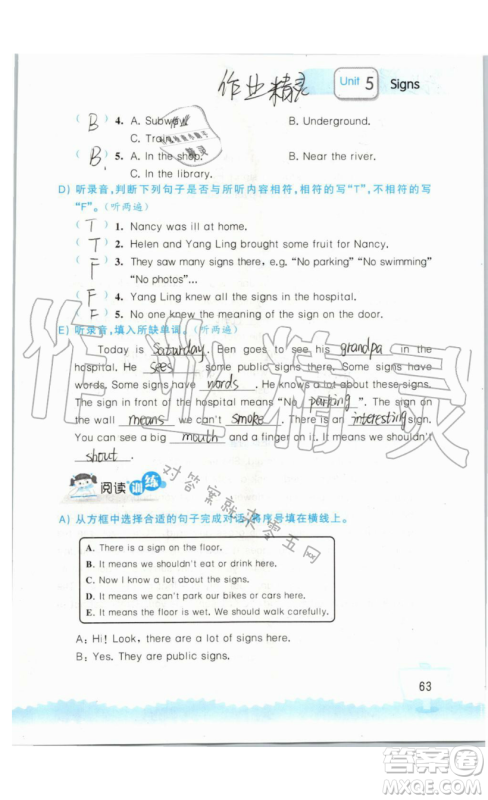 作业精灵
Unit 5 Signs
( B ) 4. A. Subway. B. Underground.
C. Train.
( B ) 5. A. In the shop. B. Near the river.
C. In the library.
D) 听录音,判断下列句子是否与所听内容相符,相符的写“T”,不相符的写
“F”。(听两遍)
( T ) 1. Nancy was ill at home.
( T ) 2. Helen and Yang Ling brought some fruit for Nancy.
3. They saw many signs there, e.g. “No parking” “No swimming”
“No photos”...
( F ) 4. Yang Ling knew all the signs in the hospital.
( F ) 5. No one knew the meaning of the sign on the door.
E) 听录音,填入所缺单词。(听两遍)
Today is Saturday. Ben goes to see his grandpa in the
hospital. He sees some public signs there. Some signs have
words. Some signs have words. Some signs don't have words.
The sign in front of the hospital means “No parking”. The sign on
the wall means we can't smoke. There is an interesting sign.
You can see a big mouth and a finger on it. It means we shouldn't
shout.
阅读训练
A) 从方框中选择合适的句子完成对话,将序号填在横线上。
A. There is a sign on the floor.
B. It means we shouldn't eat or drink here.
C. Now I know all about the signs.
D. It means we can't park our bikes or cars here.
E. It means the floor is wet. We should walk carefully.
A: Hi! Look, there are a lot of signs here.
B: Yes. They are public signs.
63
作业精灵
对答案就来零五网
答案圈
MXQE.COM